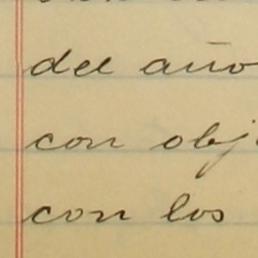 del año
con obj
con los